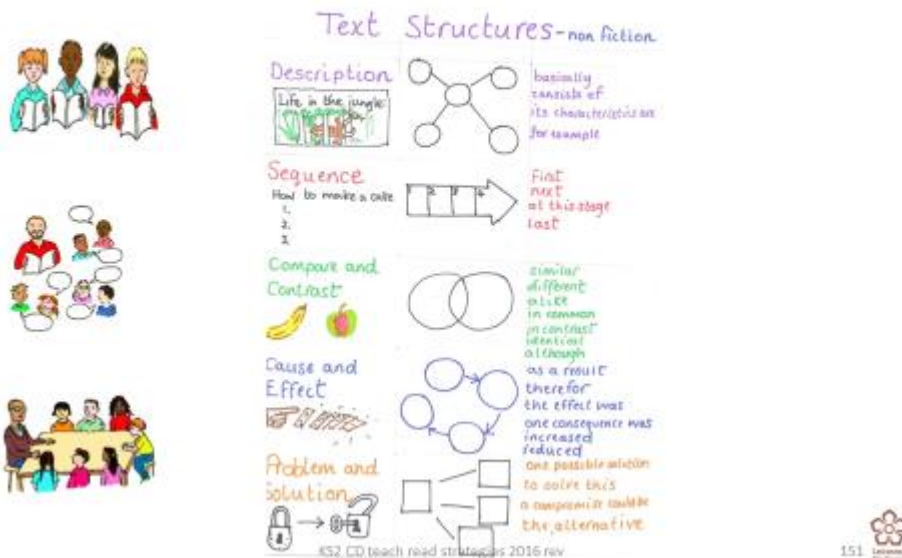 Text Structures - non fiction
Description
Life in the jungle
basically
consists of
its characteristics are
for example
Sequence
How to make a cake
1.
2.
3
1 2 3 4
First
next
at this stage
last
Compare and
Contrast
similar
different
alike
in common
in contrast
identical
although
Cause and
Effect
as a result
therefor
the effect was
one consequence was
increased
reduced
Problem and
Solution
one possible solution
to solve this
a compromise could be
the alternative
KS2 CD teach read strategies 2016 rev
151